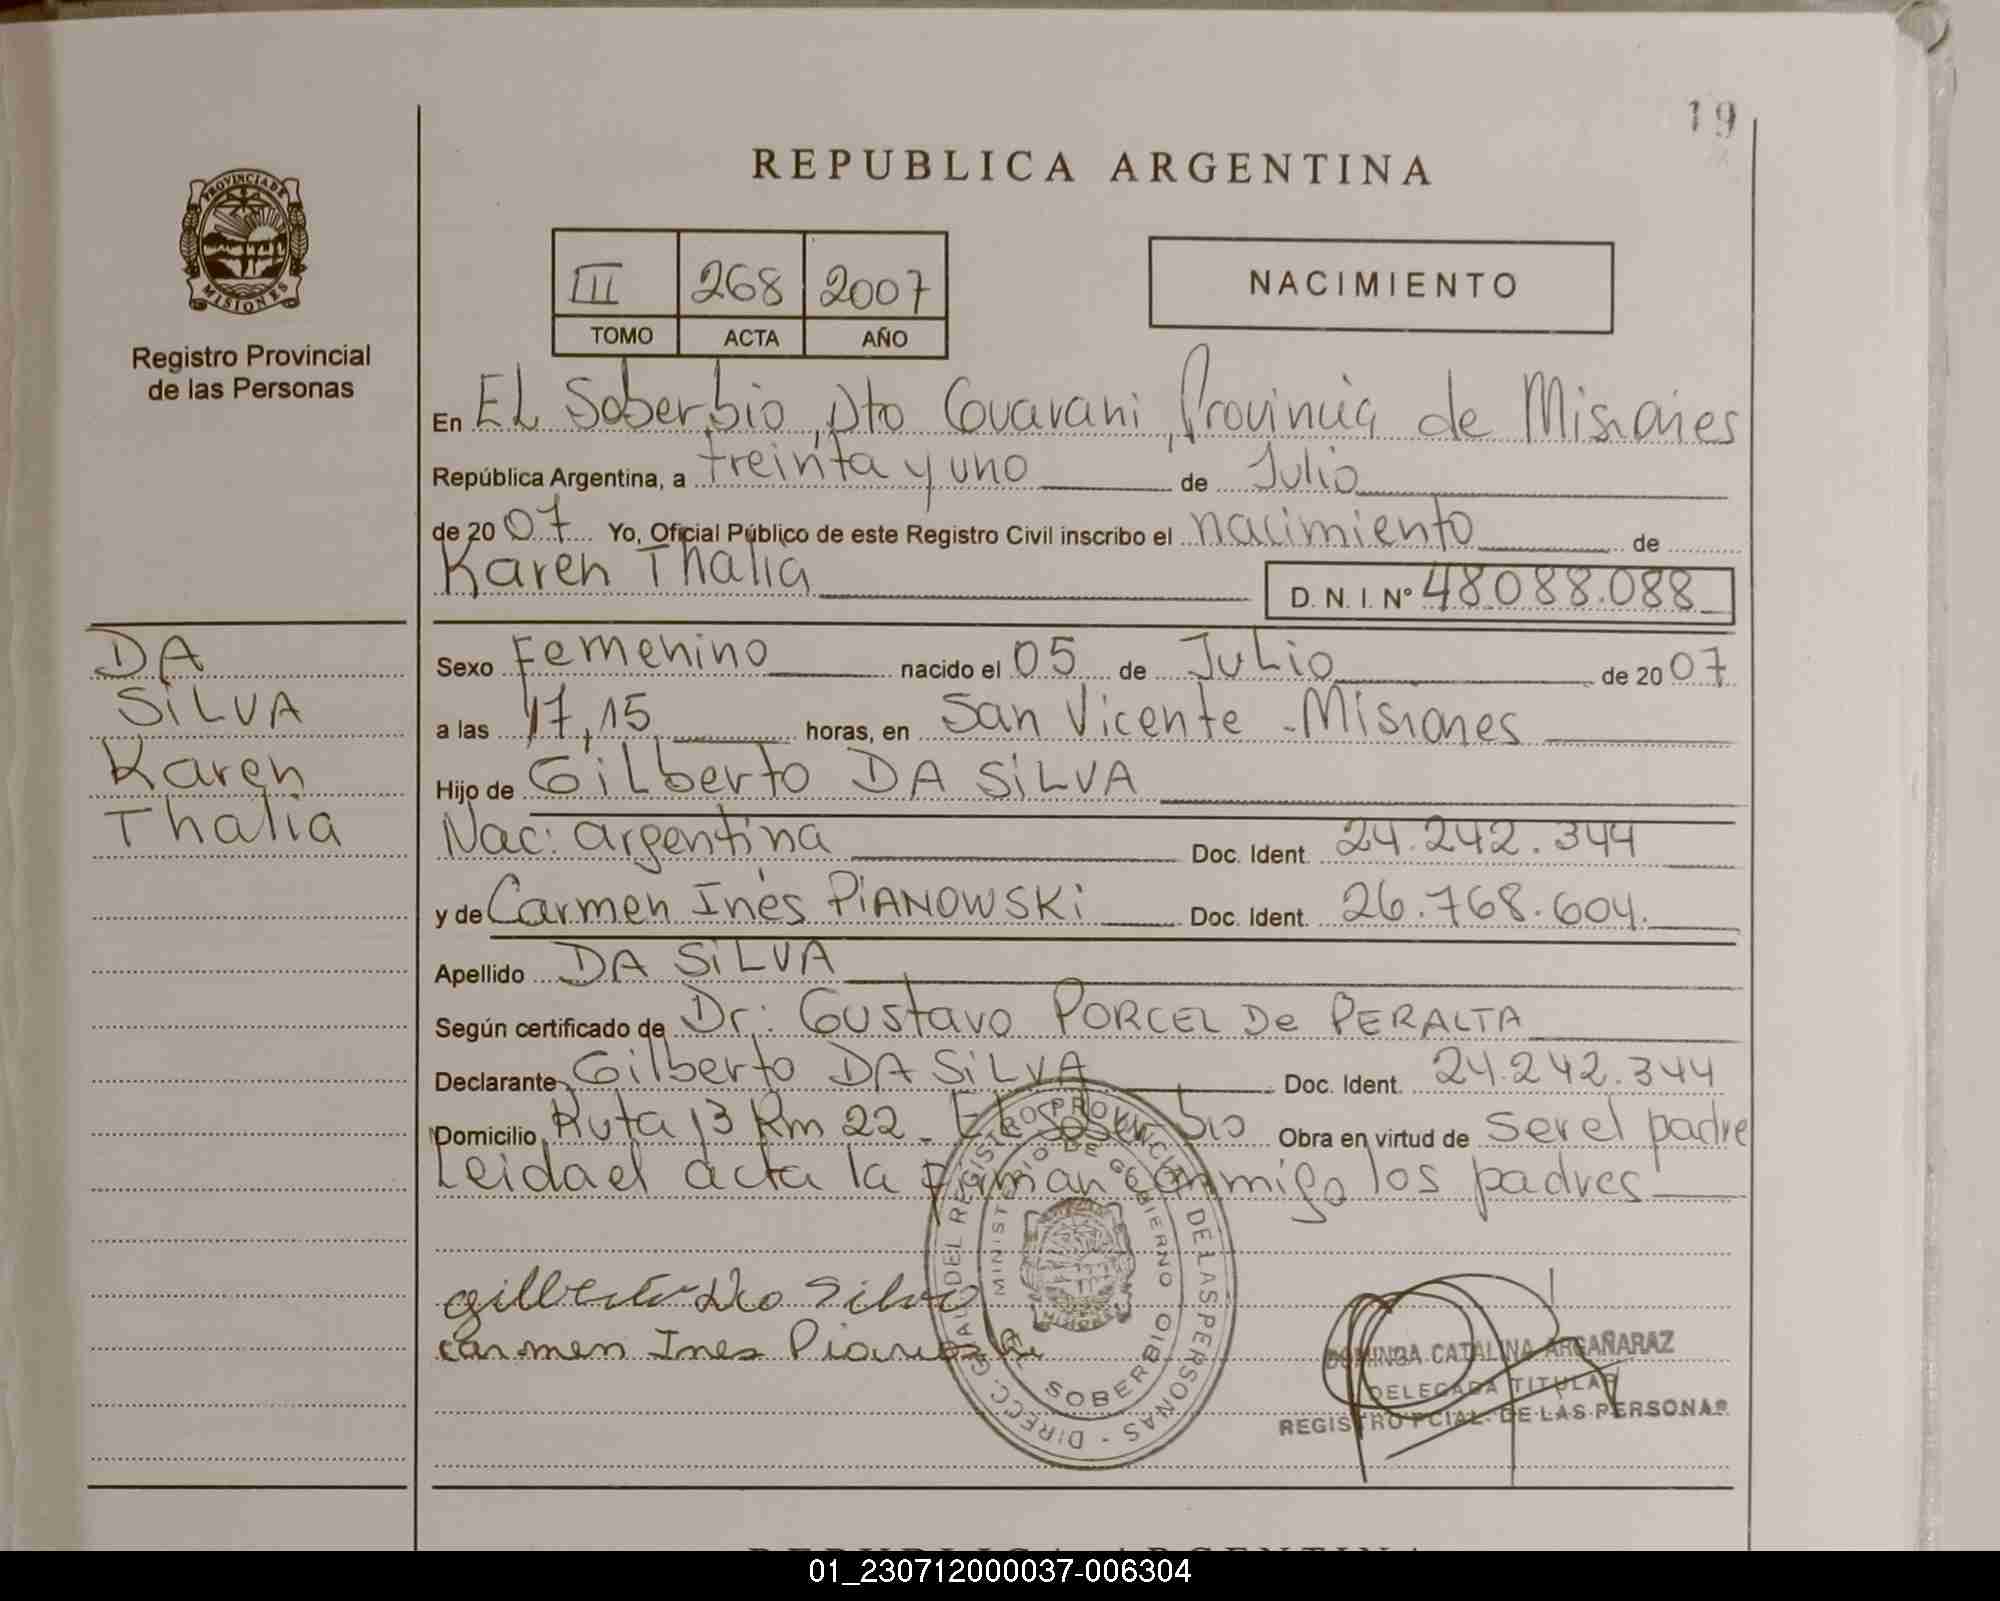 19
REPUBLICA ARGENTINA
PROVINCIA DE MISIONES
Registro Provincial
de las Personas
III 268 2007
TOMO ACTA AÑO
NACIMIENTO
En EL Soberbio, Dto Guarani, Provincia de Misiones
República Argentina, a treinta y uno de Julio
de 2007 Yo, Oficial Público de este Registro Civil inscribo el nacimiento de
Karen Thalia D. N. I. Nº 48088.088
DA
SiLVA
Karen
Thalia
Sexo Femenino nacido el 05 de JuLio de 2007
a las 17,15 horas, en San Vicente - Misiones
Hijo de GiLberto DA SiLVA
Nac: argentina Doc. Ident. 24.242.344
y de Carmen Inés PiANOWSKi Doc. Ident. 26.768.604.
Apellido DA SiLVA
Según certificado de Dr: Gustavo PORCEL De PERALTA
Declarante Gilberto DA SiLVA Doc. Ident. 24.242.344
Domicilio Ruta 13 Km 22 - EL Soberbio Obra en virtud de ser el padre
Leida el acta la firman conmigo los padres
gilberto Da Silva
carmen Ines Pianoski
DIRECC. GRAL. DEL REGISTRO PROVINCIAL DE LAS PERSONAS -
MINISTERIO DE GOBIERNO
EL SOBERBIO
DOMINGA CATALINA ARGAÑARAZ
DELEGADA TITULAR
REGISTRO PCIAL. DE LAS PERSONAS
REPUBLICA ARGENTINA
01_230712000037-006304